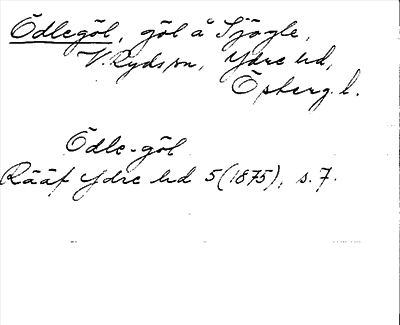 Ödlegöl, göl å Sjögle,
V. Ryds sn, Ydre hd,
Österg. l.
Ödle-göl
Rääf Ydre hd 5 (1875), s. 7.